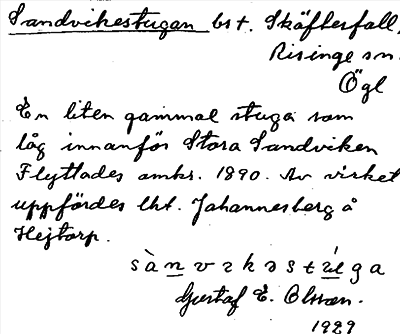 Sandvikestugan bst. Skäfterfall,
Risinge sn.
Ögl
En liten gammal stuga som
låg innanför Stora Sandviken
Flyttades omkr. 1890. Av virket
uppfördes lht. Johannesberg å
Hejtorp.
sànvekəstúga
Gustaf E. Olsson.
1929